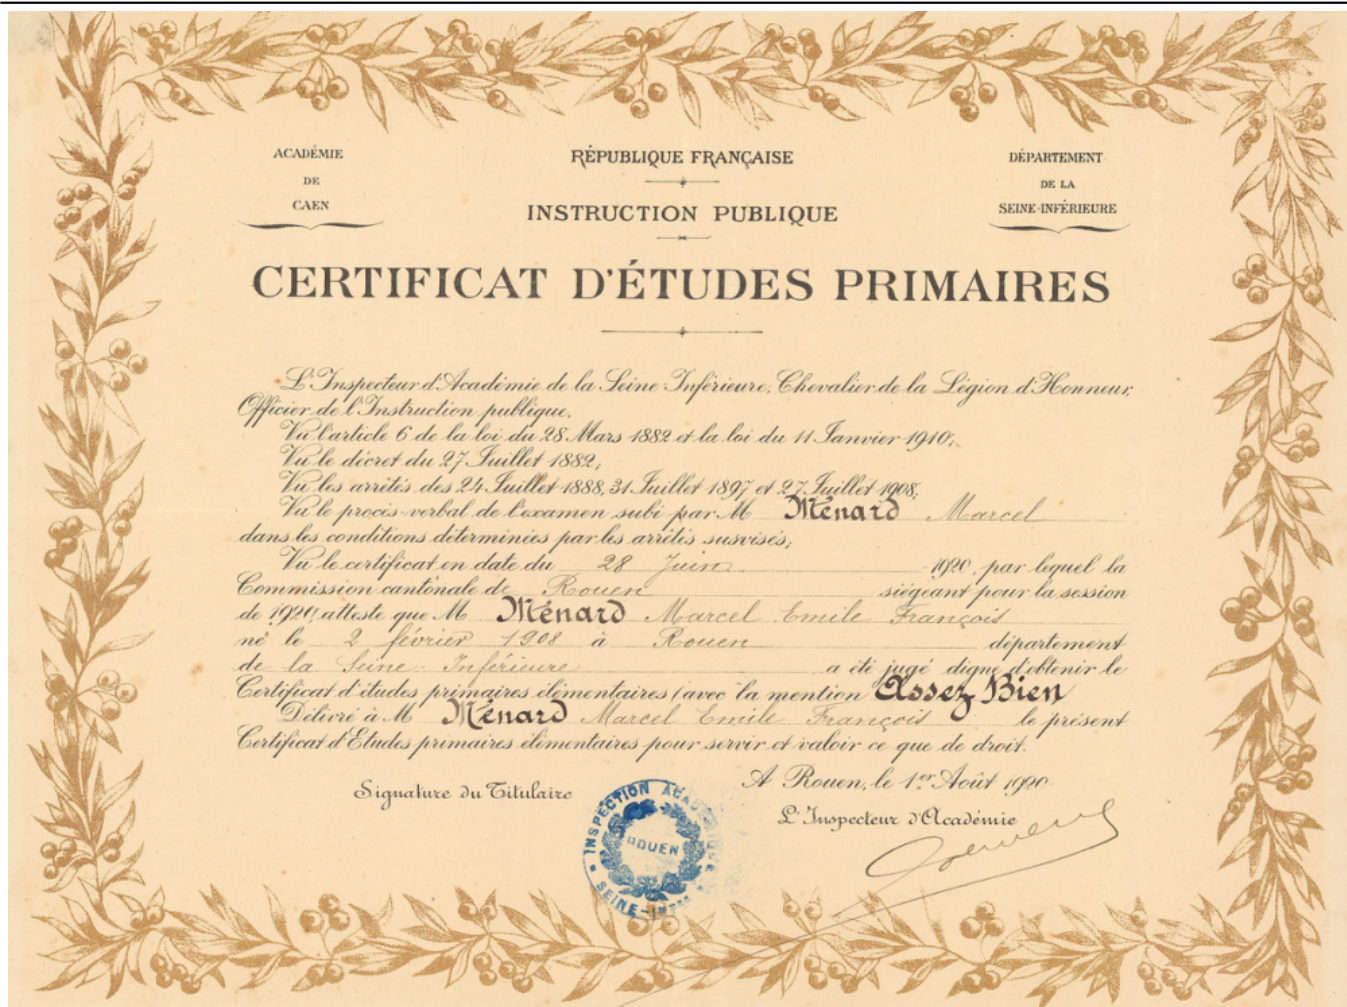 ACADÉMIE
DE
CAEN
RÉPUBLIQUE FRANÇAISE
INSTRUCTION PUBLIQUE
DÉPARTEMENT
DE LA
SEINE-INFÉRIEURE
CERTIFICAT D'ÉTUDES PRIMAIRES
L'Inspecteur d'Académie de la Seine Inférieure, Chevalier de la Légion d'Honneur,
Officier de l'Instruction publique,
Vu l'article 6 de la loi du 28 Mars 1882 et la loi du 11 Janvier 1910;
Vu le décret du 27 Juillet 1882;
Vu les arrêtés des 24 Juillet 1888, 31 Juillet 1897 et 27 Juillet 1908;
Vu le procès-verbal de l'examen subi par M Ménard Marcel
dans les conditions déterminées par les arrêtés susvisés;
Vu le certificat en date du 28 Juin 1920 par lequel la
Commission cantonale de Rouen siégeant pour la session
de 1920, atteste que M Ménard Marcel Emile François
né le 2 février 1908 à Rouen département
de la Seine-Inférieure a été jugé digne d'obtenir le
Certificat d'études primaires élémentaires (avec la mention Assez Bien
Délivré à M Ménard Marcel Emile François le présent
Certificat d'Etudes primaires élémentaires pour servir et valoir ce que de droit.
A Rouen, le 1er Août 1920
Signature du Titulaire
L'Inspecteur d'Académie
INSPECTION ACADÉMIQUE
ROUEN
SEINE-INFRE